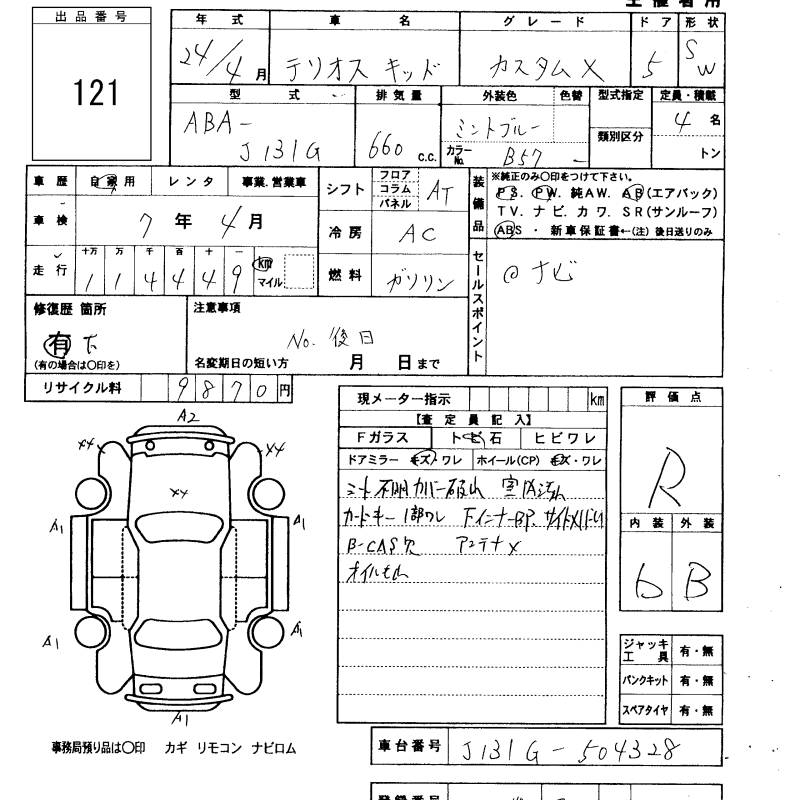 出品番号
121
年式 車名 グレード ドア 形状
24/4月 テリオス キッド カスタムX 5 SW
型式 排気量 外装色 色替 型式指定 定員・積載
ABA-
J131G 660 c.c. ミントブルー 4名
カラーNo. B57 - 類別区分 トン
車歴 自家用 レンタ 事業.営業車
車検 7年 4月
走行 十万 万 千 百 十 一
1 1 4 4 4 9 km マイル
シフト フロア コラム パネル AT
冷房 AC
燃料 ガソリン
装備品
※純正のみ〇印をつけて下さい。
PS. PW. 純AW. AB(エアバック)
TV. ナビ. カワ. SR(サンルーフ)
ABS ・ 新車保証書←(注) 後日送りのみ
セールスポイント
@ナビ
修復歴 箇所
有 下
(有の場合は〇印を)
注意事項
No. 後日
名変期日の短い方 月 日まで
リサイクル料 9870円
現メーター指示 km
【査定員記入】
Fガラス トビ石 ヒビワレ
ドアミラー キズ・ワレ ホイール(CP) キズ・ワレ
シート カバー
カードキー 1部ワレ
B-CAS欠 アンテナ×
オイル
評価点
R
内装 外装
6 B
ジャッキ 工具 有・無
パンクキット 有・無
スペアタイヤ 有・無
A2
××
××
××
A1
A1
A1
A1
A1
事務局預り品は〇印 カギ リモコン ナビロム
車台番号 J131G-504328